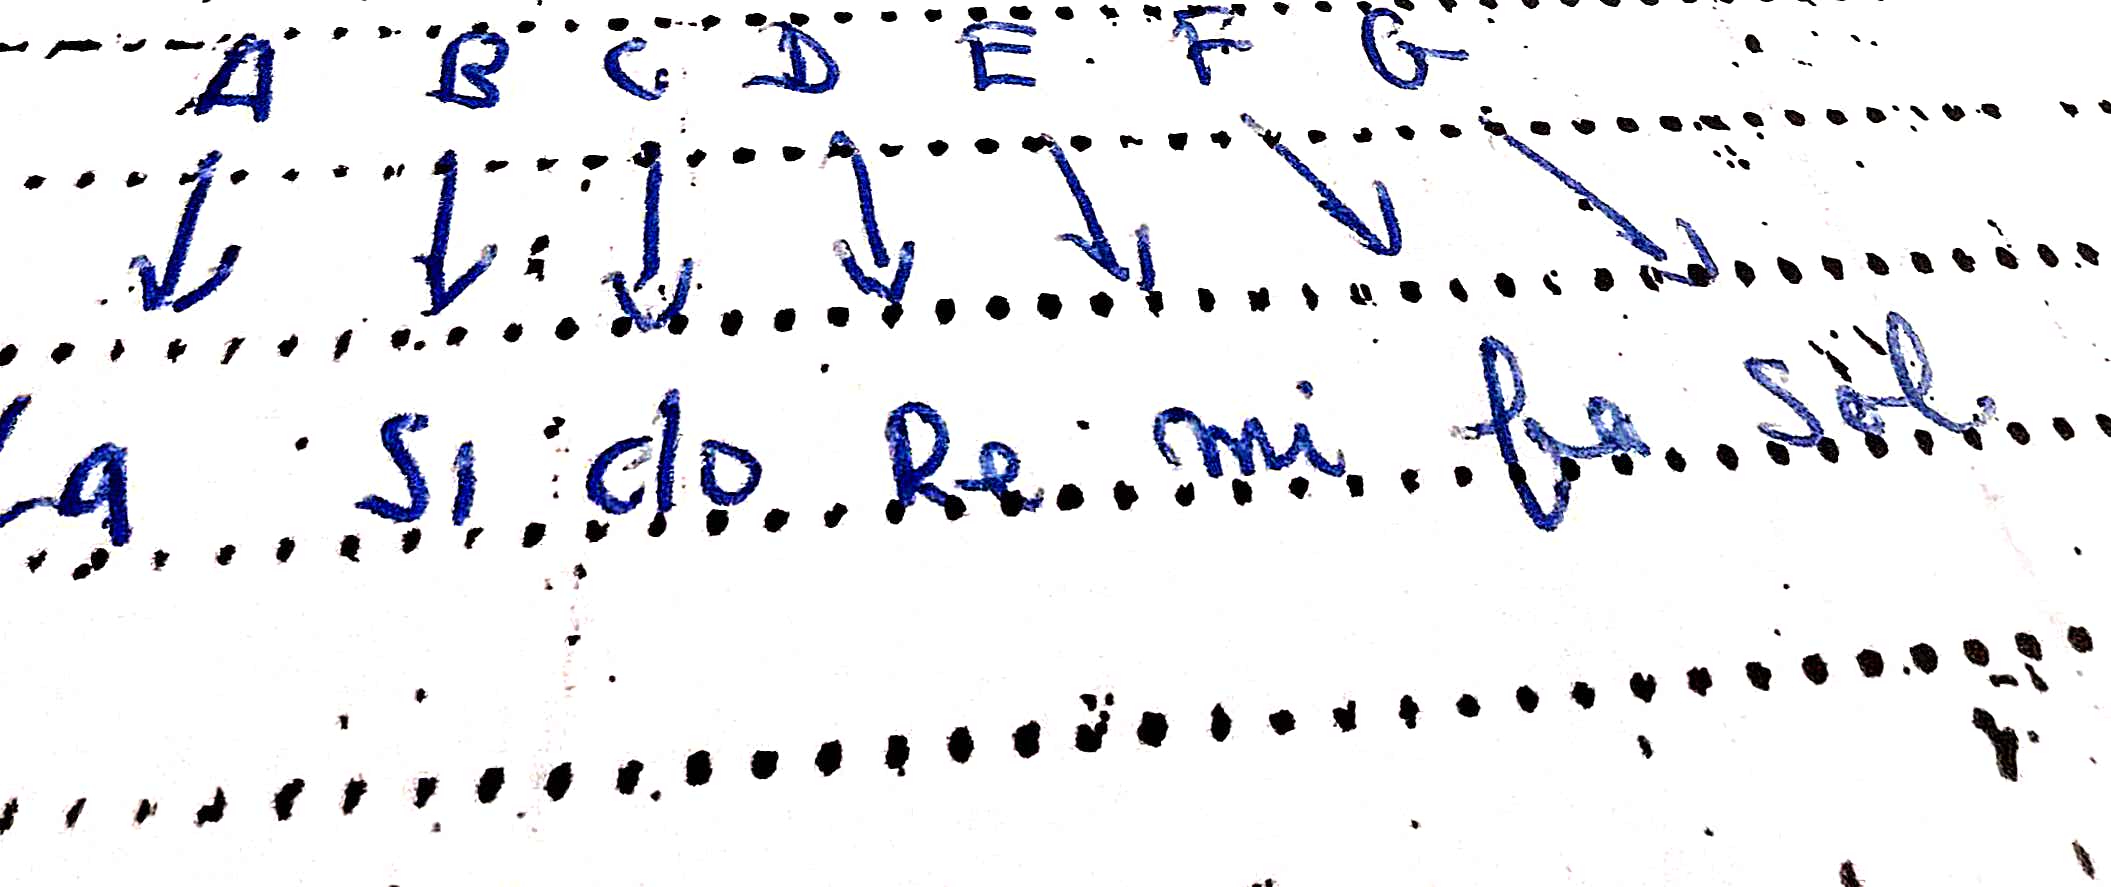 A B C D E F G
La Si do Re mi fa Sol